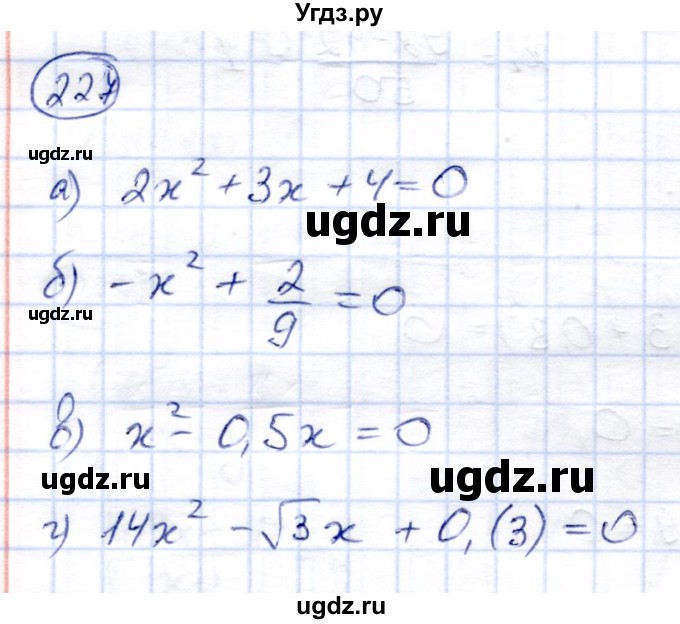 Угдз.ру
227
ugdz.ru
а) 2x² + 3x + 4 = 0
ugdz.ru
б) -x² + 2/9 = 0
ugdz.ru
в) x² - 0,5x = 0
ugdz.ru
ugdz.ru
г) 14x² - √3x + 0,(3) = 0
ugdz.ru